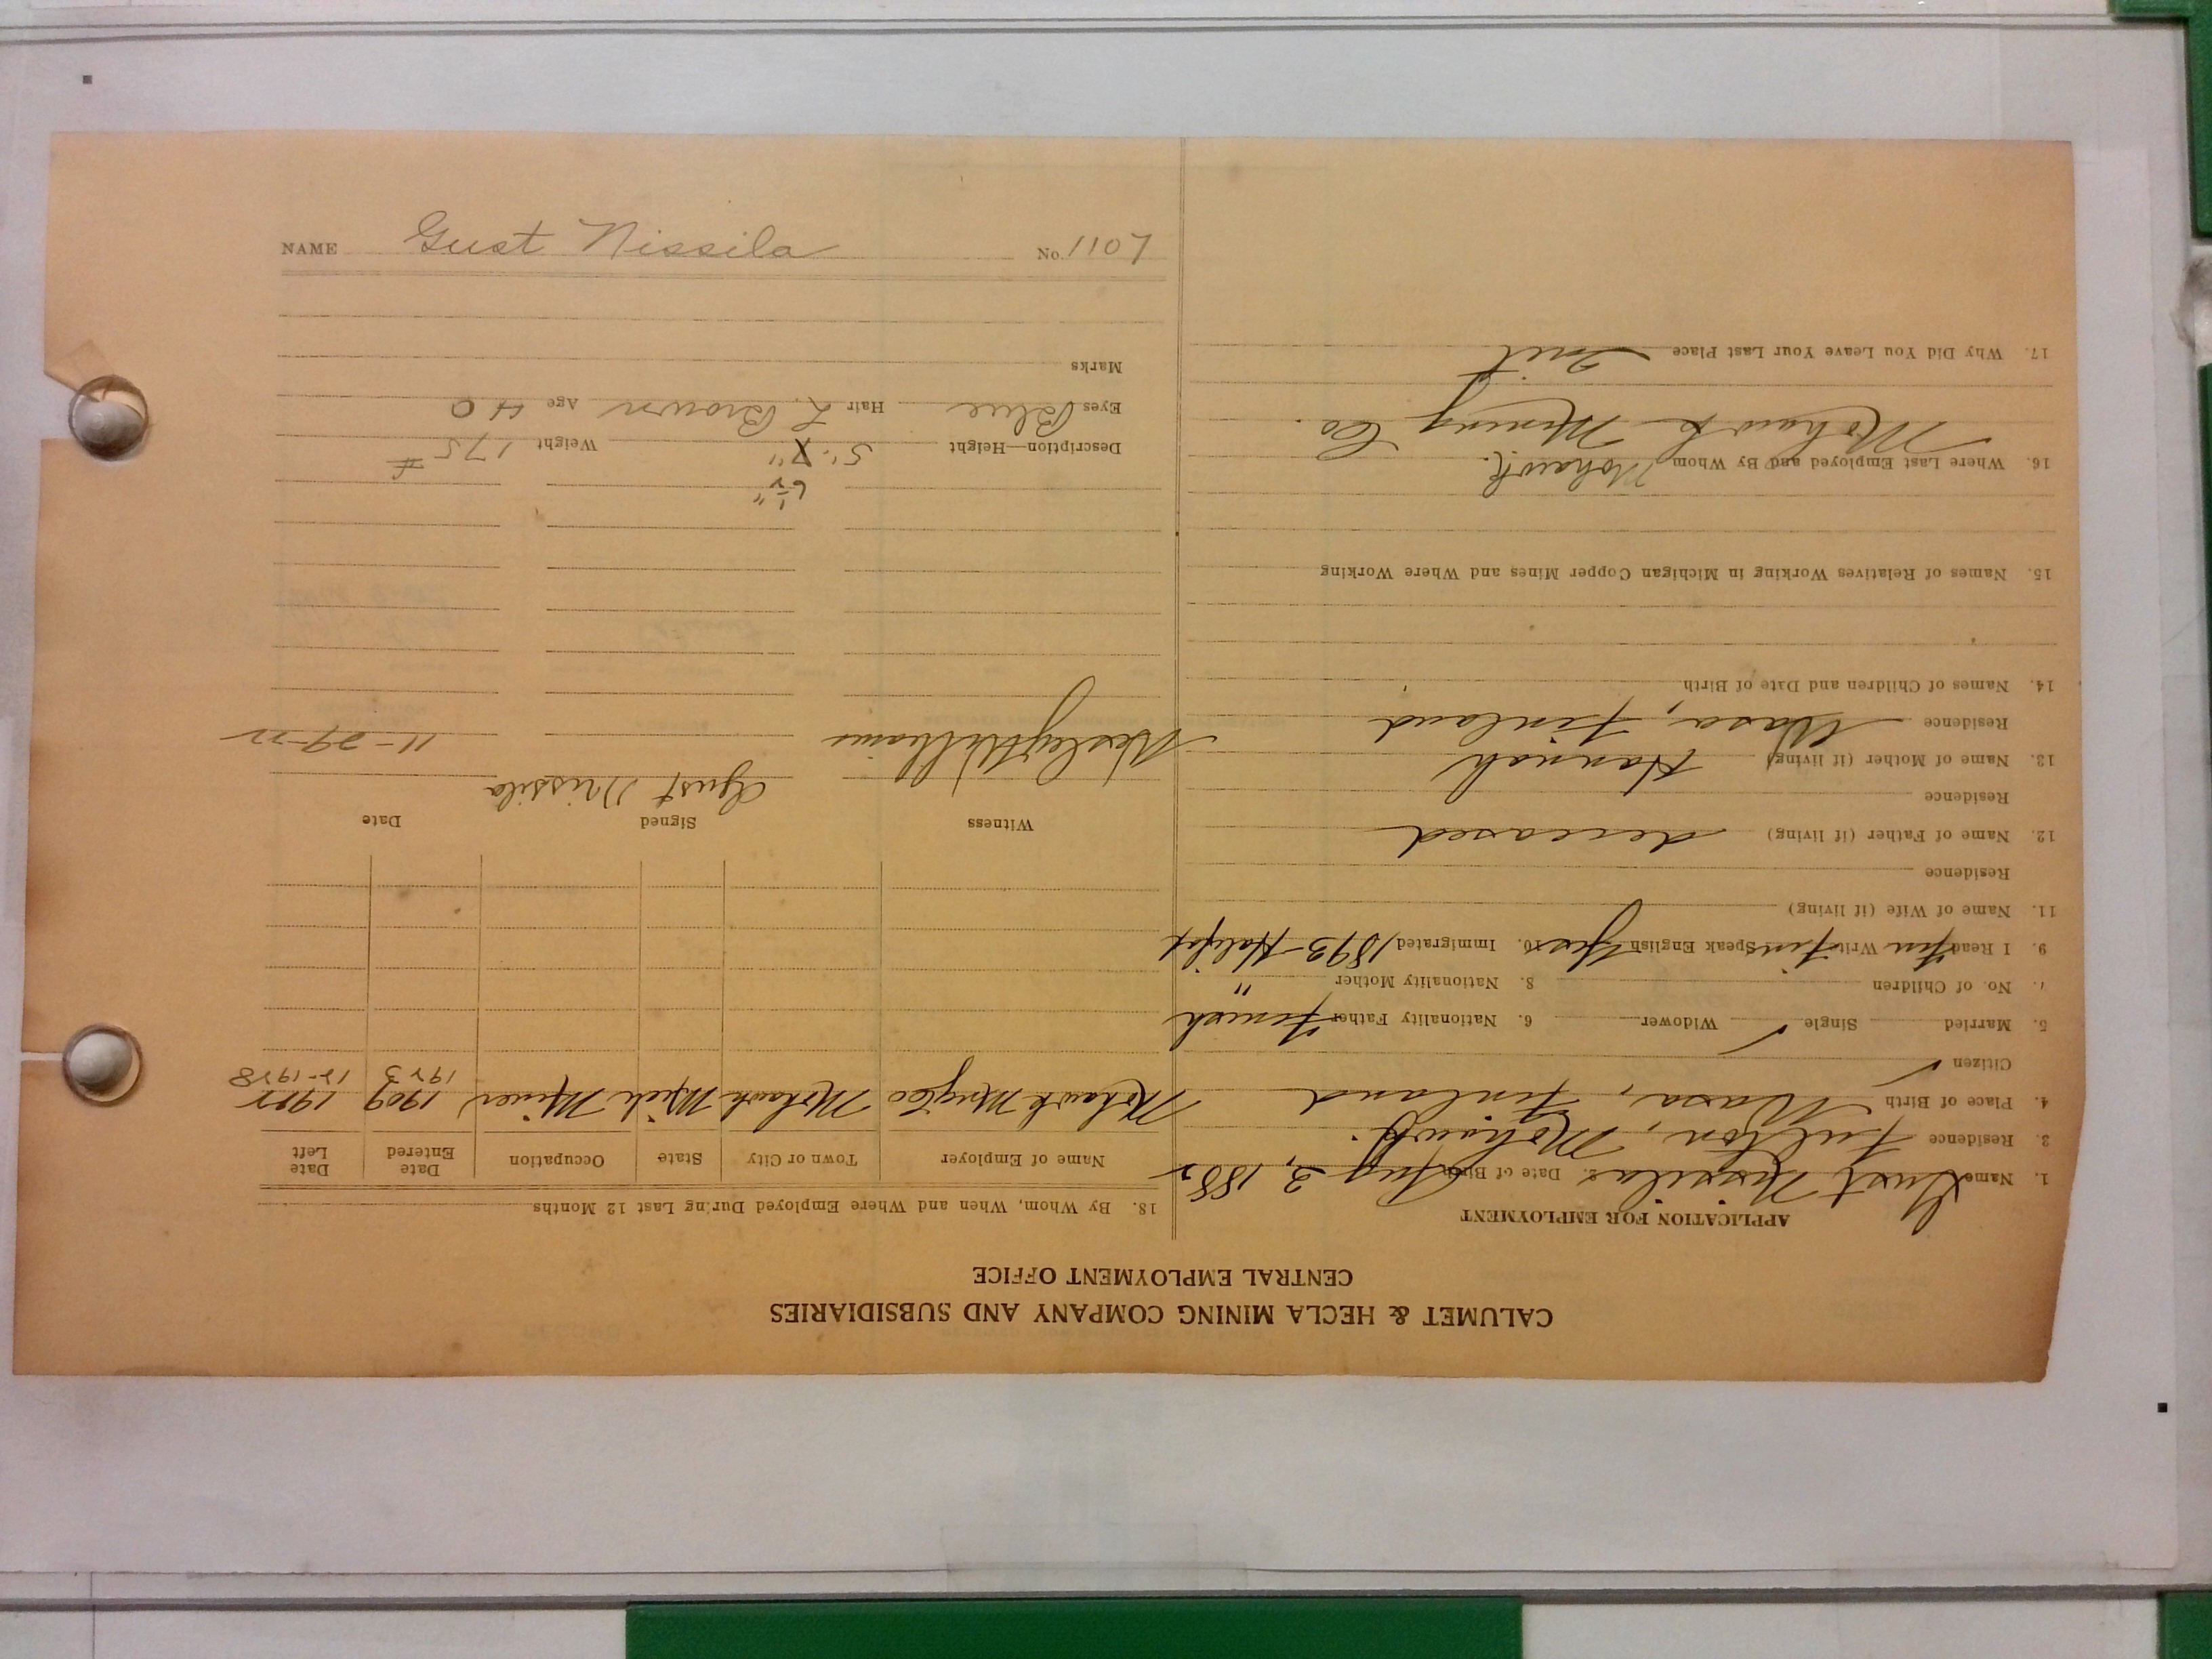 CALUMET & HECLA MINING COMPANY AND SUBSIDIARIES
CENTRAL EMPLOYMENT OFFICE
APPLICATION FOR EMPLOYMENT
1. Name Gust Nissila 2. Date of Birth Aug 2, 1882
3. Residence Fulton, Mohawk.
4. Place of Birth Wasa, Finland
Citizen ✓
5. Married Single ✓ Widower 6. Nationality Father Finnish
7. No. of Children 8. Nationality Mother "
9. I Read Finn Write Finn Speak English Yes 10. Immigrated 1893 - Halifax
11. Name of Wife (if living)
Residence
12. Name of Father (if living) deceased
Residence
13. Name of Mother (if living) Hannah
Residence Wasa, Finland
14. Names of Children and Date of Birth
15. Names of Relatives Working in Michigan Copper Mines and Where Working
16. Where Last Employed and By Whom Mohawk.
Mohawk Mining Co.
17. Why Did You Leave Your Last Place Quit
18. By Whom, When and Where Employed During Last 12 Months
Name of Employer Town or City State Occupation Date Entered Date Left
Mohawk Mng Co Mohawk Mich Miner 1909 1922
1923 12-1928
Witness Signed Date
Gust Nissila
Wesley Williams 11-29-22
6½"
Description—Height 5'-7" Weight 175 #
Eyes Blue Hair L. Brown Age 40
Marks
NAME Gust Nissila No. 1107